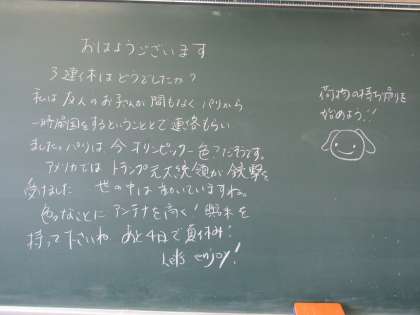 おはようございます
3連休はどうでしたか?
私は友人のお子さんが間もなくパリから
一時帰国をするということで連絡もらい
ました。パリは今オリンピック一色?だそうです。
アメリカではトランプ元大統領が銃撃を
受けました 世の中は動いていますね。
色々なことにアンテナを高く!興味を
持って下さいね あと4日で夏休み!
Let's enjoy!
荷物の持ち帰りを
始めよう!!